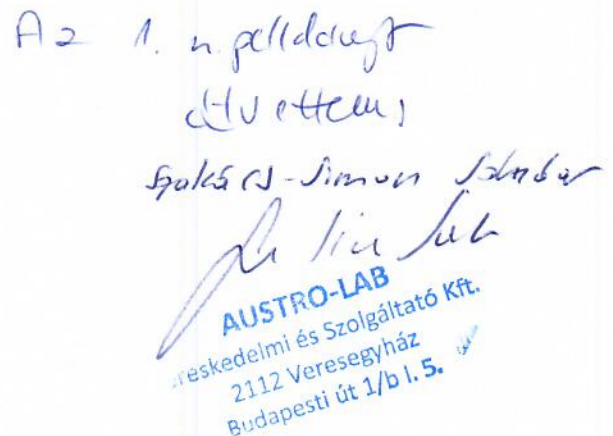 Az 1. n. példányt
átvettem,
Szakács-Simon Sándor
AUSTRO-LAB
reskedelmi és Szolgáltató Kft.
2112 Veresegyház
Budapesti út 1/b I. 5.